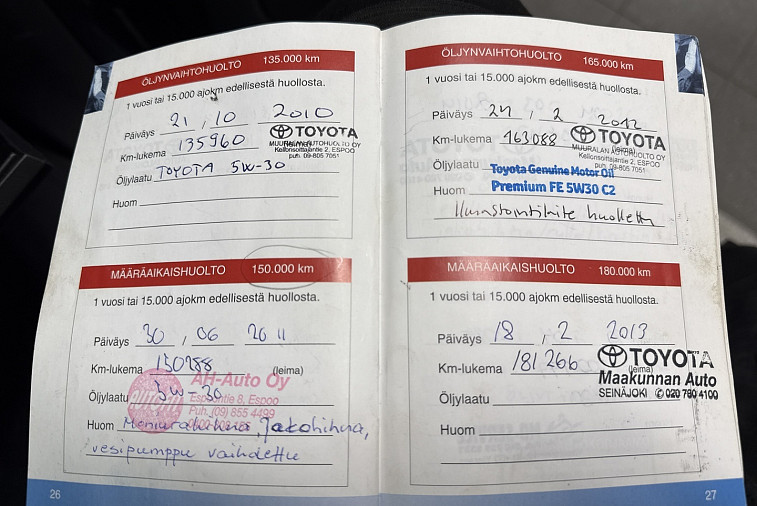 ÖLJYNVAIHTOHUOLTO 135.000 km
1 vuosi tai 15.000 ajokm edellisestä huollosta.
Päiväys 21 . 10 2010
Km-lukema 135960
TOYOTA
MUURALAN AUTOHUOLTO OY
Kellonsoittajantie 2, ESPOO
puh. 09-805 7051
Öljylaatu TOYOTA 5W-30
Huom
MÄÄRÄAIKAISHUOLTO 150.000 km
1 vuosi tai 15.000 ajokm edellisestä huollosta.
Päiväys 30 , 06 2011
Km-lukema 150288 (leima)
AH-Auto Oy
Öljylaatu 5W-30
Espoontie 8, Espoo
Puh. (09) 855 4499
Huom Moniurahihna, Jakohihna,
vesipumppu vaihdettu
26
ÖLJYNVAIHTOHUOLTO 165.000 km
1 vuosi tai 15.000 ajokm edellisestä huollosta.
Päiväys 24 , 2 2012
Km-lukema 163088 (leima)
TOYOTA
MUURALAN AUTOHUOLTO OY
Kellonsoittajantie 2, ESPOO
puh. 09-805 7051
Öljylaatu Toyota Genuine Motor Oil
Huom Premium FE 5W30 C2
Ilmastointilaite huollettu
MÄÄRÄAIKAISHUOLTO 180.000 km
1 vuosi tai 15.000 ajokm edellisestä huollosta.
Päiväys 18 , 2 2013
Km-lukema 181266 (leima)
TOYOTA
Maakunnan Auto
SEINÄJOKI
Öljylaatu
Huom
27